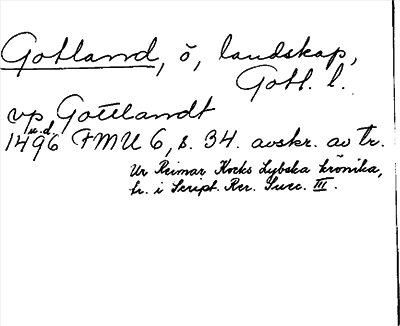 Gotland, ö, landskap,
Gotl. l.
vp Gottlandt
u.d.
1496 FMU 6, s. 34. avskr. av tr.
Ur Reimar Kocks Lybska krönika,
tr. i Script. Rer. Suec. III.